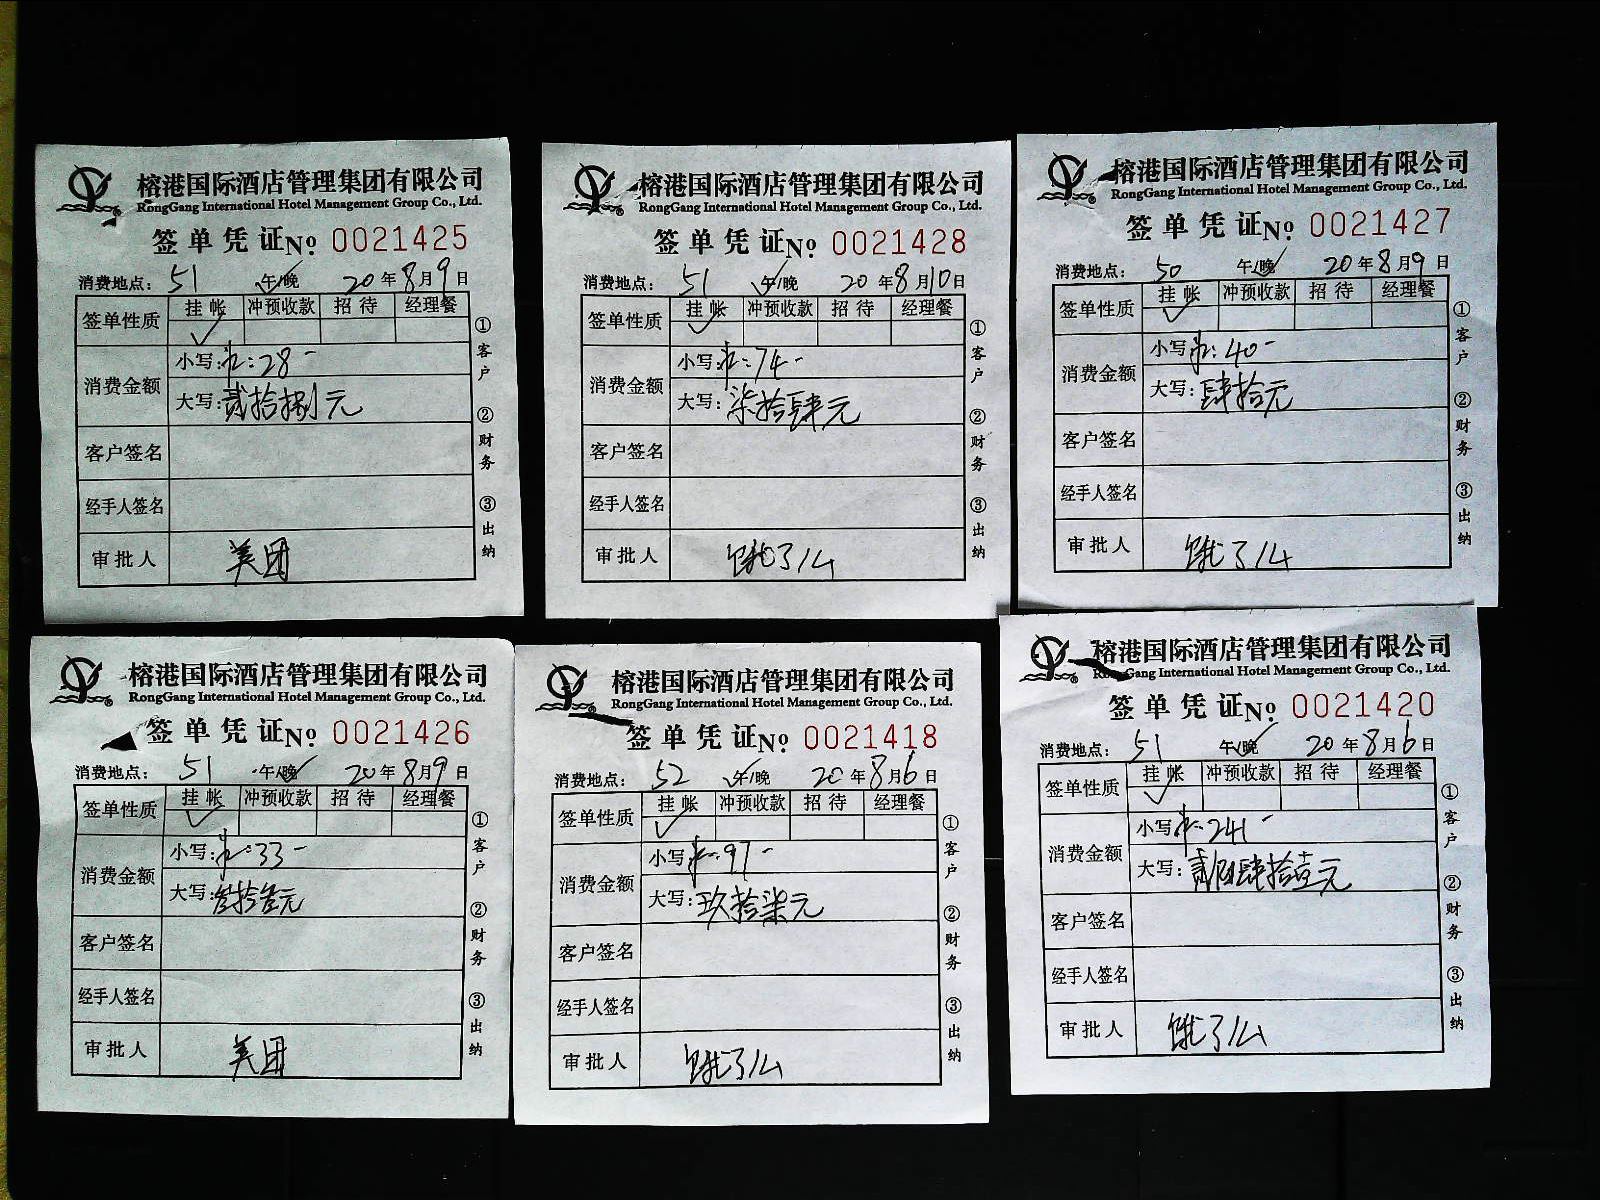 榕港国际酒店管理集团有限公司
RongGang International Hotel Management Group Co., Ltd.
签单凭证 No. 0021425
消费地点： 51 午/晚 20年8月9日
签单性质 挂帐 冲预收款 招待 经理餐
消费金额 小写：¥：28-
大写：贰拾捌元
客户签名
经手人签名
审批人 美团
①客户 ②财务 ③出纳
榕港国际酒店管理集团有限公司
RongGang International Hotel Management Group Co., Ltd.
签单凭证 No. 0021428
消费地点： 51 午/晚 20年8月10日
签单性质 挂帐 冲预收款 招待 经理餐
消费金额 小写：¥：74-
大写：柒拾肆元
客户签名
经手人签名
审批人 饿了么
①客户 ②财务 ③出纳
榕港国际酒店管理集团有限公司
RongGang International Hotel Management Group Co., Ltd.
签单凭证 No. 0021427
消费地点： 50 午/晚 20年8月9日
签单性质 挂帐 冲预收款 招待 经理餐
消费金额 小写：¥：40-
大写：肆拾元
客户签名
经手人签名
审批人 饿了么
①客户 ②财务 ③出纳
榕港国际酒店管理集团有限公司
RongGang International Hotel Management Group Co., Ltd.
签单凭证 No. 0021426
消费地点： 51 午/晚 20年8月9日
签单性质 挂帐 冲预收款 招待 经理餐
消费金额 小写：¥：33-
大写：叁拾叁元
客户签名
经手人签名
审批人 美团
①客户 ②财务 ③出纳
榕港国际酒店管理集团有限公司
RongGang International Hotel Management Group Co., Ltd.
签单凭证 No. 0021418
消费地点： 52 午/晚 20年8月6日
签单性质 挂帐 冲预收款 招待 经理餐
消费金额 小写：¥：97-
大写：玖拾柒元
客户签名
经手人签名
审批人 饿了么
①客户 ②财务 ③出纳
榕港国际酒店管理集团有限公司
RongGang International Hotel Management Group Co., Ltd.
签单凭证 No. 0021420
消费地点： 51 午/晚 20年8月6日
签单性质 挂帐 冲预收款 招待 经理餐
消费金额 小写：¥：241-
大写：贰佰肆拾壹元
客户签名
经手人签名
审批人 饿了么
①客户 ②财务 ③出纳